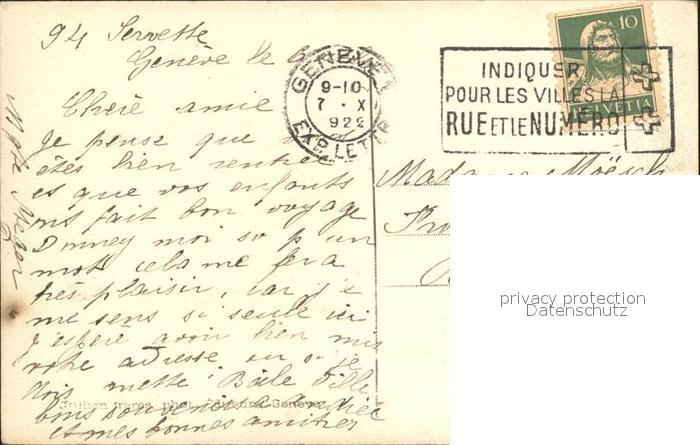 94 Servette
Genève le 6
Chère amie
Je pense que
êtes bien rentrée
es que vos enfants
ont fait bon voyage
Donney moi sv p un
mot cela me fera
très plaisir, car je
me sens si seule ici
J'espère avoir bien mis
votre adresse ou si je
dois mettre Bâle Ville
bons souvenirs
et mes bonnes amitiés
GENÈVE 1
9-10
7 · X
922
EXP. LETTR
INDIQUER
POUR LES VILLES LA
RUE ET LE NUMÉRO
10
HELVETIA
Madame Möesch
privacy protection
Datenschutz
Jullien frères, phot. éditeurs Genève